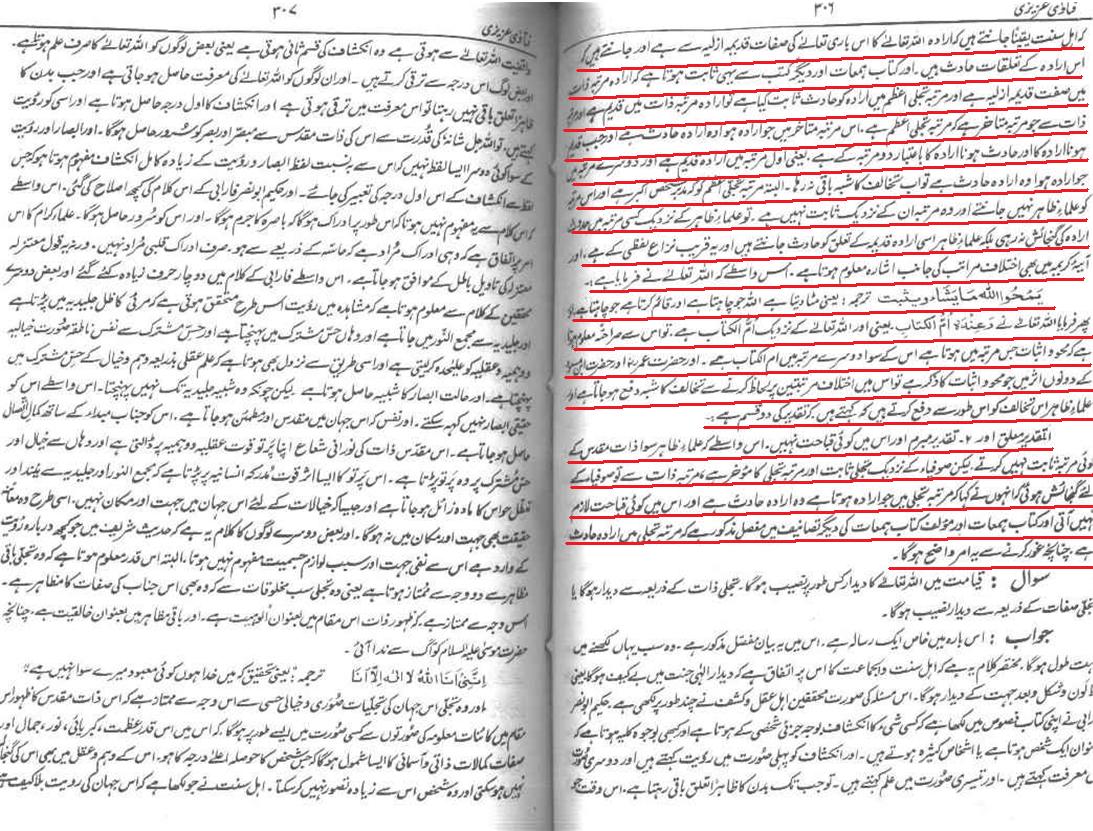 فتاوٰی عزیزی
۳۰۶
کہ اہل سنت یقیناً جانتے ہیں کہ ارادہ اللہ تعالےٰ کا اس باری تعالےٰ کی صفات قدیمہ ازلیہ سے ہے اور جانتے ہیں کہ
اس ارادہ کے تعلقات حادث ہیں ۔ اور کتاب ہمعات اور دیگر کتب سے یہی ثابت ہوتا ہے کہ ارادہ مرتبہ ذات
میں صفت قدیمہ ازلیہ ہے اور مرتبہ تجلی اعظم میں ارادہ کو حادث ثابت کیا ہے تو ارادہ مرتبہ ذات میں قدیم ہے اور مرتبہ
ذات سے جو مرتبہ متاخر ہے کہ مرتبہ تجلی اعظم ہے ۔ اس مرتبہ متاخر میں جو ارادہ ہوا وہ ارادہ حادث ہے اور جب قدیم
ہونا ارادہ کا اور حادث ہونا ارادہ کا باعتبار دو مرتبہ کے ہے ۔ یعنی اول مرتبہ میں ارادہ قدیم ہے اور دوسرے مرتبہ میں
جو ارادہ ہوا وہ ارادہ حادث ہے تو اب تخالف کا شبہ باقی نہ رہا ۔ البتہ مرتبہ تجلی اعظم کو کہ مدبر شخص اکبر ہے اور اس مرتبہ
کو علماء ظاہر نہیں جانتے اور وہ مرتبہ ان کے نزدیک ثابت نہیں ہے ۔ تو علماء ظاہر کے نزدیک کسی مرتبہ میں حادث
ارادہ کی گنجائش نہ رہی بلکہ علماء ظاہر اسی ارادہ قدیمہ کے تعلق کو حادث جانتے ہیں اور یہ قریب نزاع لفظی کے ہے ، اور
آیۃ کریمہ میں بھی اختلاف مراتب کی جانب اشارہ معلوم ہوتا ہے ۔ اس واسطے کہ اللہ تعالےٰ نے فرمایا ہے :۔
یَمْحُوا اللہ مَا یَشَاء ویثبت ترجمہ : یعنی مٹا دیتا ہے اللہ جو چاہتا ہے اور قائم کرتا ہے جو چاہتا ہے
پھر فرمایا اللہ تعالےٰ نے وَعِنْدَہٗ اُمُّ الکتاب یعنی اور اللہ تعالےٰ کے نزدیک اُم الکتاب ہے ۔ تو اس سے صراحۃً معلوم ہوتا
ہے کہ محو و اثبات جس مرتبہ میں ہوتا ہے اس کے سوا دوسرے مرتبہ میں ام الکتاب ہے ۔ اور حضرت عمرؓ اور حضرت
کے دونوں اثر میں جو محو و اثبات کا ذکر ہے تو اس میں اختلاف مرتبتین پر لحاظ کرنے سے تخالف کا شبہ دفع ہو جاتا ہے اور
علماء ظاہر اس تخالف کو اس طور سے دفع کرتے ہیں کہ کہتے ہیں کہ تقدیر کی دو قسم ہے ۔
۱۔ تقدیر معلق اور ۲۔ تقدیر مبرم اور اس میں کوئی قباحت نہیں ۔ اس واسطے کہ علماء ظاہر سوا ذات مقدس کے
کوئی مرتبہ ثابت نہیں کرتے ۔ لیکن صوفیاء کے نزدیک تجلی ثابت اور مرتبہ تجلی کا مؤخر ہے ، مرتبہ ذات سے تو صوفیاء کے
لئے گنجائش ہوئی کہ انہوں نے کہا کہ مرتبہ تجلی میں جو ارادہ ہوتا ہے وہ ارادہ حادث ہے اور اس میں کوئی قباحت لازم
نہیں آتی اور کتاب ہمعات اور مؤلف کتاب ہمعات کی دیگر تصانیف میں مفصل مذکور ہے کہ مرتبہ تجلی میں ارادہ حادث
ہے چنانچہ غور کرنے سے یہ امر واضح ہوگا ۔
سوال : قیامت میں اللہ تعالےٰ کا دیدار کس طور پر نصیب ہوگا ۔ تجلی ذات کے ذریعہ سے دیدار ہوگا یا
تجلی صفات کے ذریعہ سے دیدار نصیب ہوگا ۔
جواب : اس بارہ میں خاص ایک رسالہ ہے ۔ اس میں یہ بیان مفصل مذکور ہے ۔ وہ سب یہاں لکھنے میں
بہت طول ہوگا ۔ مختصر کلام یہ ہے کہ اہل سنت والجماعت کا اس پر اتفاق ہے کہ دیدار الٰہی جنت میں بے کیف ہوگا یعنی
لون و شکل و بعد و جہت کے دیدار ہوگا ۔ اس مسئلہ کی صورت محققین اہل عقل و کشف نے چند طور پر لکھی ہے ۔ حکیم ابو نصر
فارابی نے اپنی کتاب فصوص میں لکھا ہے کہ کسی شیء کا انکشاف بوجہ جزئی شخصی کے ہوتا ہے اور کبھی بوجوہ کلیہ ہوتا ہے کہ
عنوان ایک شخص ہوتا ہے یا اشخاص کثیرہ ہوتے ہیں ۔ اور انکشاف کو پہلی صورت میں رویت کہتے ہیں اور دوسری صورت
میں معرفت کہتے ہیں ۔ اور تیسری صورت میں علم کہتے ہیں ۔ تو جب تک بدن کا ظاہراً تعلق باقی رہتا ہے ۔ اس وقت جو
فتاوٰی عزیزی
۳۰۷
واقفیت اللہ تعالےٰ سے ہوتی ہے وہ انکشاف کی قسم ثانی ہوتی ہے یعنی بعض لوگوں کو اللہ تعالےٰ کا صرف علم ہوتا ہے ۔
اور بعض لوگ اس درجہ سے ترقی کرتے ہیں ۔ اور ان لوگوں کو اللہ تعالےٰ کی معرفت حاصل ہو جاتی ہے اور جب بدن کا
ظاہراً تعلق باقی نہیں رہتا تو اس معرفت میں ترقی ہوتی ہے اور انکشاف کا اول درجہ حاصل ہوتا ہے اور اسی کو رؤیت
کہتے ہیں ۔ تو اللہ جل شانہ کی قدرت سے اس کی ذات مقدس سے مبصر اور بصر کو سرور حاصل ہوگا ۔ اور ابصار اور رویت
کے سوا کوئی دوسرا ایسا لفظ نہیں کہ اس سے بہ نسبت لفظ ابصار و رؤیت کے زیادہ کامل انکشاف مفہوم ہوتا ہو کہ جس
لفظ سے انکشاف کے اس اول درجہ کی تعبیر کی جائے ۔ اور حکیم ابو نصر فارابی کے اس کلام کی کچھ اصلاح کی گئی ۔ اس واسطے
کہ اس کلام سے یہ مفہوم نہیں ہوتا کہ اس طور پر ادراک ہوگا کہ باصرہ کا جرم ہوگا ۔ اور اس کو سُرور حاصل ہوگا ۔ علماء کرام کا اس
امر پر اتفاق ہے کہ وہی ادراک مُراد ہے کہ حاسّہ کے ذریعے سے ہو ۔ صرف ادراک قلبی مراد نہیں ۔ ورنہ یہ قول معتزلہ
معتزلہ کی تاویل باطل کے موافق ہو جاتا ہے ۔ اس واسطے فارابی کے کلام میں دو چار حرف زیادہ کئے گئے اور بعض دوسرے
محققین کے کلام سے معلوم ہوتا ہے کہ مشاہدہ میں رؤیت اس طرح متحقق ہوتی ہے کہ مرئی کا ظل جلیدیہ میں پڑتا ہے
اور جلیدیہ سے مجمع النّور میں جاتا ہے اور وہاں حس مشترک میں پہنچتا ہے اور حس مشترک سے نفس ناطقہ صورت خیالیہ
و وہمیہ و عقلیہ کو علیحدہ کر لیتی ہے اور اسی طریق سے نزول بھی ہوتا ہے کہ علم عقلی بذریعہ وہم و خیال کے حس مشترک میں
پہنچتا ہے ۔ اور حالت ابصار کا شبیہ حاصل ہوتا ہے ۔ لیکن چونکہ وہ شبیہ جلیدیہ تک نہیں پہنچتا ۔ اس واسطے اس کو
حقیقی ابصار نہیں کہہ سکتے ۔ اور نفس کو اس جہان میں مقدس اور مطمئن ہو جاتا ہے ۔ اس کو جناب مبداء کے ساتھ کمال اتصال
حاصل ہو جاتا ہے ۔ اس مقدس ذات کی نورانی شعاع اپنا پرتو قوت عقلیہ و وہمیہ پر ڈالتی ہے اور وہاں سے خیال اور
حسِ مشترک پر وہ پرتو پڑتا ہے ۔ اس پرتو کا ایسا اثر قوت مُدرکہ انسانیہ پر پڑتا ہے کہ مجمع النور اور جلیدیہ سے نیند اور
تعطل حواس کا مادہ زائل ہو جاتا ہے اور جیسا کہ خیالات کے لئے اس جہان میں جہت اور مکان نہیں ۔ اسی طرح وہ معاملہ
حقیقت بھی جہت اور مکان میں نہ ہوگا ۔ اور بعض دوسرے لوگوں کا کلام یہ ہے کہ حدیث شریف میں جو کچھ دربارہ رؤیت
کے وارد ہے اس سے نفی جہت اور سبب لوازم جسمیت مفہوم نہیں ہوتا ، البتہ اس قدر معلوم ہوتا ہے کہ وہ تجلی باقی
مظاہر سے دو وجہ سے ممتاز ہوتا ہے یعنی وہ تجلی سب مخلوقات سے کہ وہ بھی اس جناب کی صفات کا مظاہر ہے ۔
اس وجہ سے ممتاز ہے ۔ کہ ظہور ذات اس مقام میں بعنوان الوہیت ہے ۔ اور باقی مظاہر میں بعنوان خالقیت ہے ، چنانچہ
حضرت موسٰی علیہ السلام کو آگ سے ندا آئی ۔
اِنَّنِیْ اَنَا اللہُ لَا اِلٰہَ اِلَّا اَنَا ترجمہ : یعنی تحقیق کہ میں خدا ہوں کوئی معبود میرے سوا نہیں ہے :
اور وہ تجلی اس جہان کی تجلیات صُوری و خیالی حسی سے اس وجہ سے ممتاز ہے کہ اس ذات مقدس کا ظہور اس
مقام میں کائنات معلومہ کی صورتوں سے کسی صورت میں ایسے طور پر ہوگا ۔ کہ اس میں اس قدر عظمت ، کبریائی ، نور ، جمال اور
صفات کمالات ذاتی و اسمائی کا ایسا شمول ہوگا کہ جس شخص کا حوصلہ اعلےٰ درجہ کا ہو ۔ اس کے وہم و عقل میں بھی اس کی گنجائش
نہیں ہو سکتی اور وہ شخص اس سے زیادہ تصور نہیں کر سکتا ۔ اہل سنت نے جو لکھا ہے کہ اس جہان کی رویت بلا کیف ہے